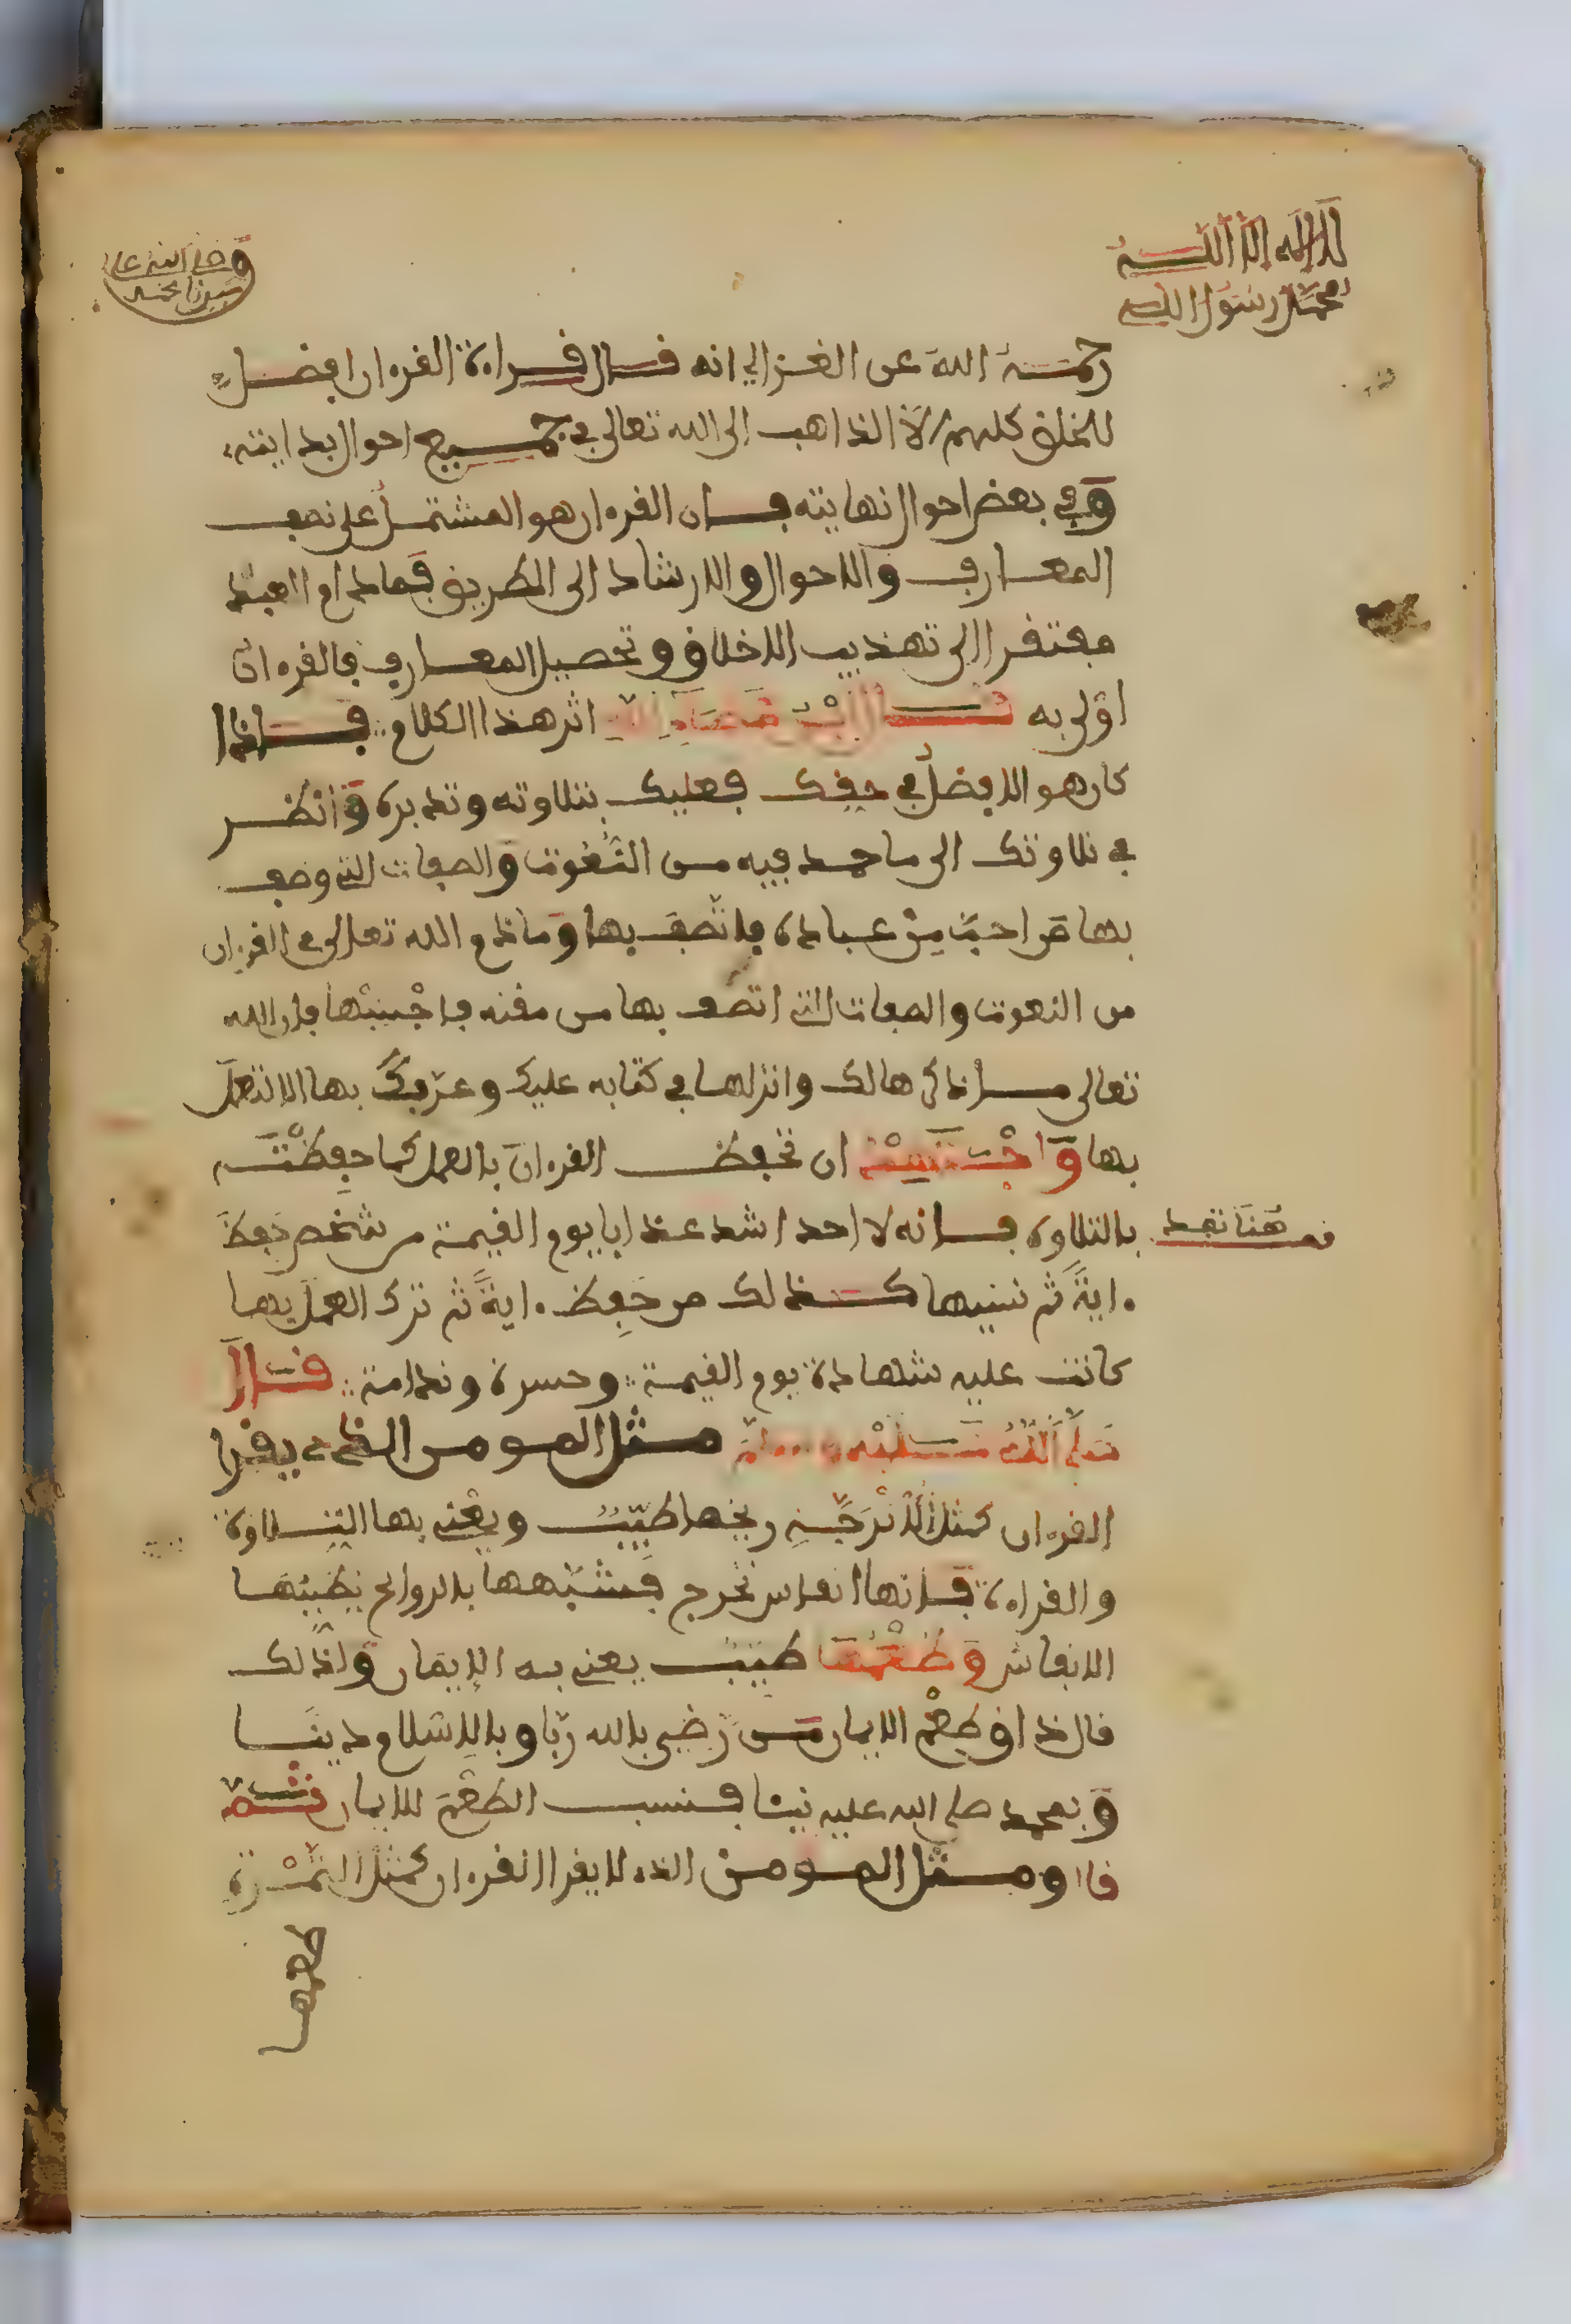 لا اله الا الله
محمد رسول الله
وصلى الله على
سيدنا محمد
رحمة الله عن الغزالي انه قال قراءة القرءان افضل
للخلق كلهم الا الذاهب الى الله تعالى في جميع احوال بدايته
وفي بعض احوال نهايته فان القرءان هو المشتمل على
المعارف والاحوال والارشاد الى الطريق فمادام العبد
مفتقرا الى تهذيب الاخلاق وتحصيل المعارف فالقرءان
اولى به قال اثر هذا الكلام فاذا
كان هو الافضل في حقك فعليك بتلاوته وتدبره وانظر
في تلاوتك الى ما حمد فيه من النعوت والصفات التي وصف
بها من احبّ من عباده فاتصف بها وما ذم الله تعالى في القرءان
من النعوت والصفات التي اتصف بها من مقته فاجتنبها فان الله
تعالى ما ذكرها لك وانزلها في كتابه عليك وعرّفك بها الا لتعمل
بها واجتهد ان تحفظ القرءان بالعمل كما حفظته
بالتلاوة فانه لا احد اشد عذابا يوم القيمة من شخص حفظ
قف هنا تفد
ءاية ثم نسيها كذلك من حفظ ءاية ثم ترك العمل بها
كانت عليه شهادة يوم القيمة وحسرة وندامة قال
صلى الله عليه وسلم مثل المومن الذي يقرا
القرءان كمثل الأترجّة ريحها طيّب ويعني بها التلاوة
والقراءة فانها انفاس تخرج فشبهها بالروايح
الانفاس وطعمها طيب يعني به الايمان ولذلك
قال ذاق طعم الايمان من رضي بالله ربّا وبالاسلام دينا
وبمحمد صلى الله عليه نبيّا فنسب الطعم للايمان ثم
قال ومثل المومن الذي لا يقرا القرءان كمثل التمرة
طعمها